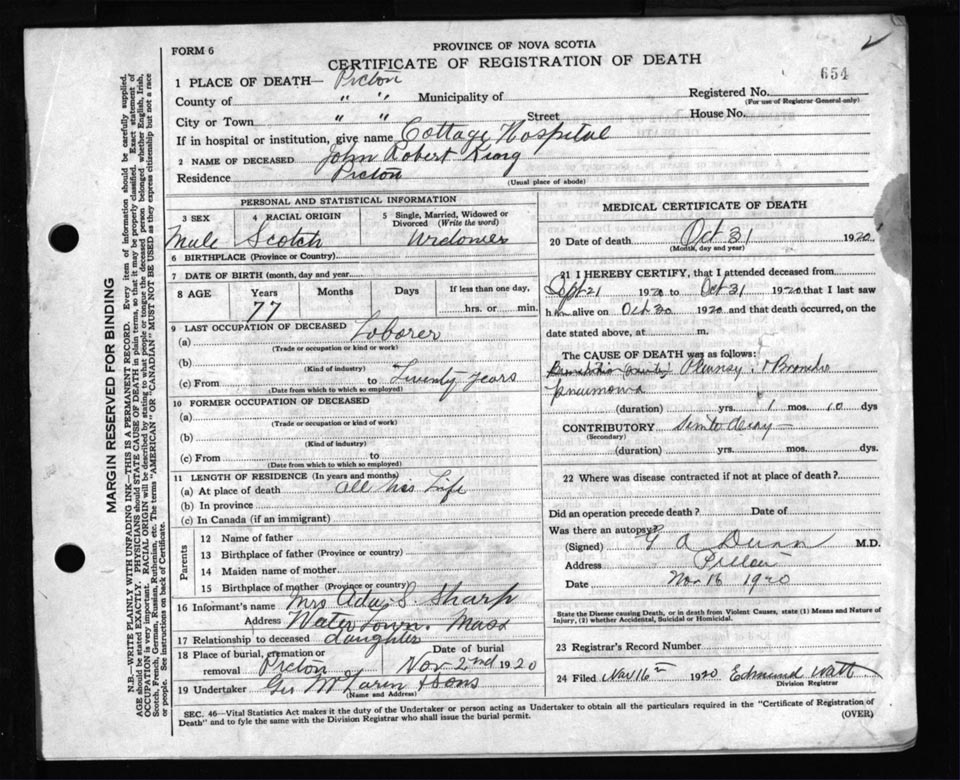 FORM 6
PROVINCE OF NOVA SCOTIA
CERTIFICATE OF REGISTRATION OF DEATH
654
1 PLACE OF DEATH— Pictou
County of " " Municipality of
Registered No.
(For use of Registrar General only)
City or Town " " Street
House No.
If in hospital or institution, give name Cottage Hospital
2 NAME OF DECEASED John Robert King
Residence Pictou
(Usual place of abode)
PERSONAL AND STATISTICAL INFORMATION
3 SEX
Male
4 RACIAL ORIGIN
Scotch
5 Single, Married, Widowed or Divorced (Write the word)
6 BIRTHPLACE (Province or Country)
7 DATE OF BIRTH (month, day and year)
8 AGE Years Months Days If less than one day,
77 hrs. or min.
9 LAST OCCUPATION OF DECEASED
(a) Loborer
(Trade or occupation or kind or work)
(b)
(Kind of industry)
(c) From to Twenty years
(Date from which to which so employed)
10 FORMER OCCUPATION OF DECEASED
(a)
(Trade or occupation or kind of work)
(b)
(Kind of industry)
(c) From to
(Date from which to which so employed)
11 LENGTH OF RESIDENCE (In years and months)
(a) At place of death all his Life
(b) In province
(c) In Canada (if an immigrant)
Parents
12 Name of father
13 Birthplace of father (Province or country)
14 Maiden name of mother
15 Birthplace of mother (Province or country)
16 Informant's name Mrs Ada S. Sharp
Address Watertown. Mass
17 Relationship to deceased daughter
18 Place of burial, cremation or removal Pictou
Date of burial
Nov 2nd 1920
19 Undertaker Geo McLaren & Sons
(Name and Address)
MEDICAL CERTIFICATE OF DEATH
20 Date of death Oct 31 1920
(Month, day and year)
21 I HEREBY CERTIFY, that I attended deceased from
Sept 21 1920 to Oct 31 1920 that I last saw
him alive on Oct 30 1920 and that death occurred, on the
date stated above, at m.
The CAUSE OF DEATH was as follows:
Pleurisy + Broncho
pneumonia
(duration) yrs. 1 mos. 10 dys
CONTRIBUTORY Senile decay
(Secondary)
(duration) yrs. mos. dys.
22 Where was disease contracted if not at place of death?
Did an operation precede death? Date of
Was there an autopsy?
(Signed) G A Dunn M.D.
Address Pictou
Date Nov 16 1920
State the Disease causing Death, or in death from Violent Causes, state (1) Means and Nature of
Injury, (2) whether Accidental, Suicidal or Homicidal.
23 Registrar's Record Number
24 Filed Nov 16th 1920 Edmund
Division Registrar
SEC. 46—Vital Statistics Act makes it the duty of the Undertaker or person acting as Undertaker to obtain all the particulars required in the "Certificate of Registration of
Death" and to fyle the same with the Division Registrar who shall issue the burial permit.
(OVER)
MARGIN RESERVED FOR BINDING
N.B.—WRITE PLAINLY WITH UNFADING INK—THIS IS A PERMANENT RECORD. Every item of information should be carefully supplied.
AGE should be stated EXACTLY. PHYSICIANS should STATE CAUSE OF DEATH in plain terms, so that it may be properly classified. Exact statement of
OCCUPATION is very important. RACIAL ORIGIN will be described by stating to what people or tongue the deceased person belonged whether English, Irish,
Scotch, French, German, Russian, Ruthenian, etc. The terms "AMERICAN" or "CANADIAN" MUST NOT BE USED as they express citizenship but not a race
or people. See instructions on back of Certificate.